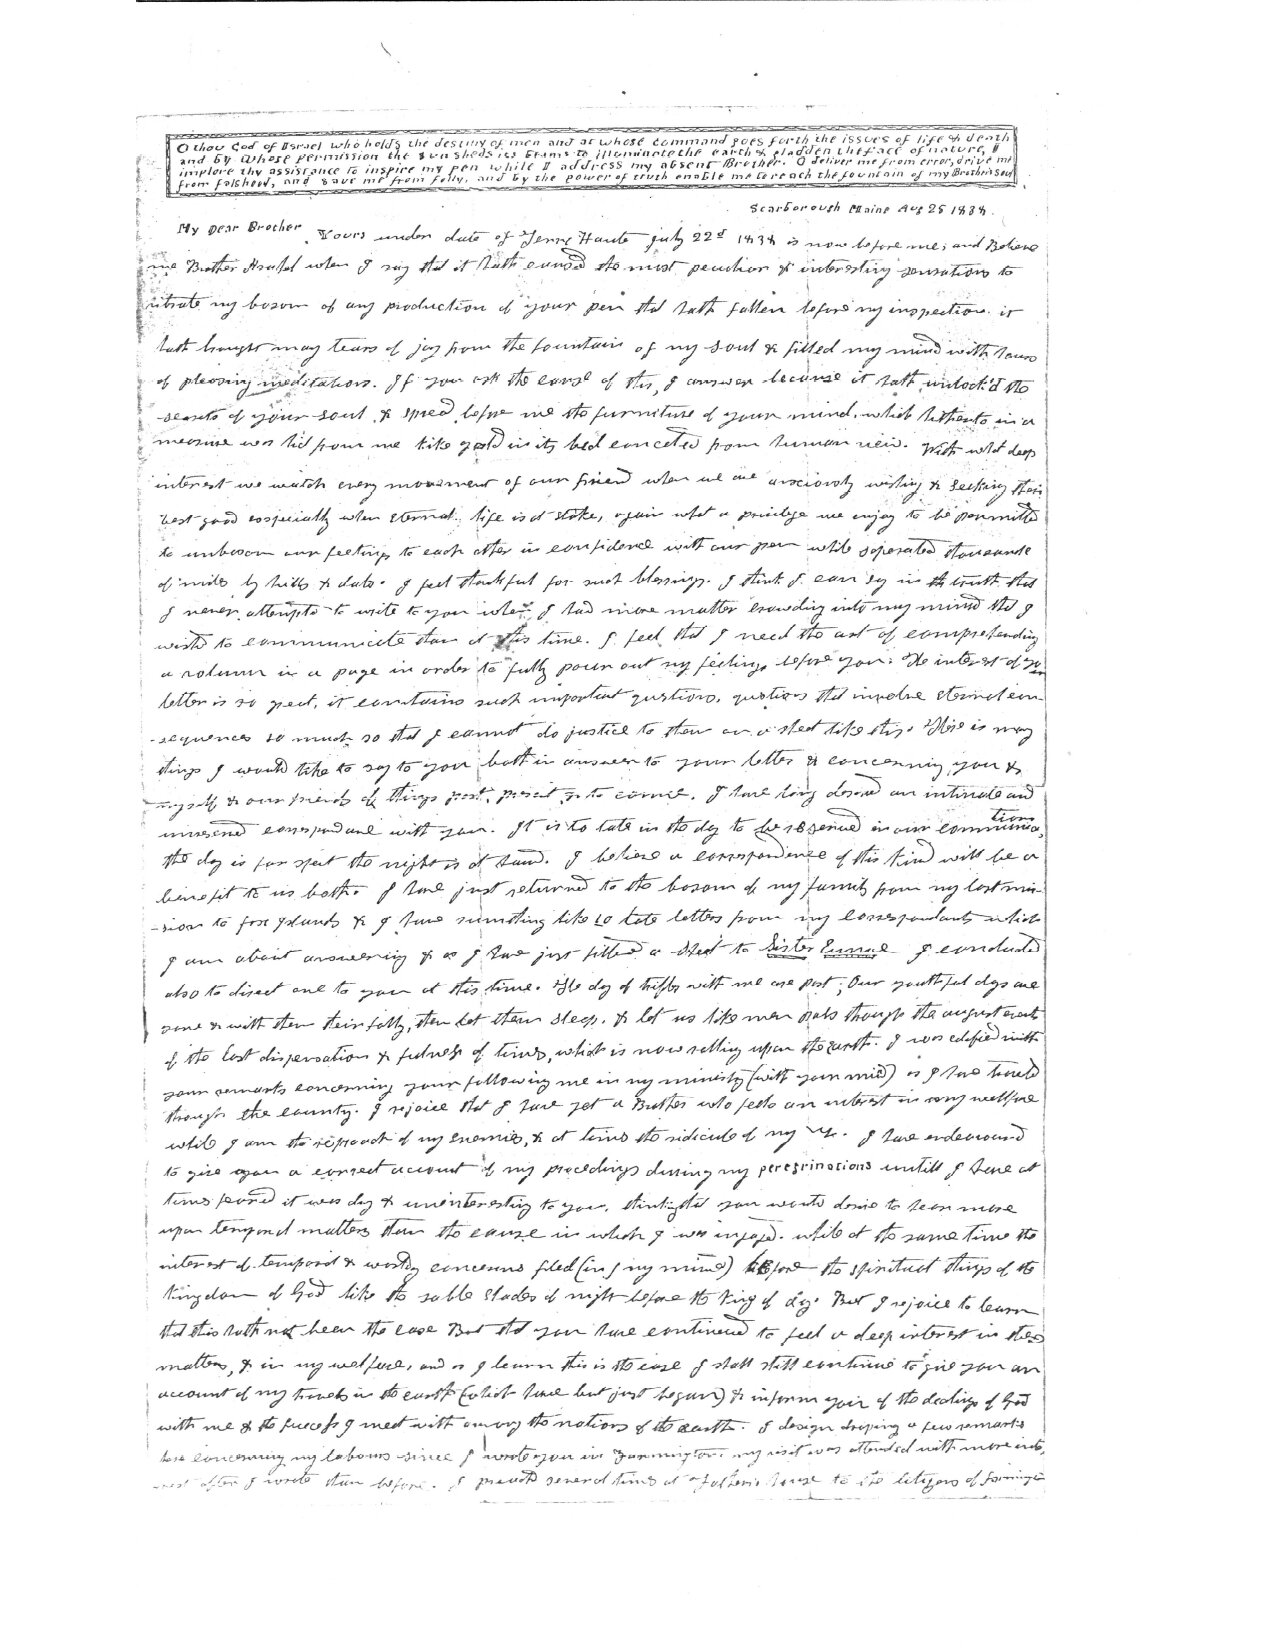 O thou God of Israel who holds the destiny of men and at whose command goes forth the issues of life & death
and by whose permission the sun sheds its beams to illuminate the earth & gladden the face of nature, I
implore thy assistance to inspire my pen while I address my absent Brother. O deliver me from error, drive me
from falshood, and save me from folly, and by the power of truth enable me to reach the fountain of my Brothers soul
Scarborough Maine Aug 25 1838.
My Dear Brother Yours under date of Terre Haute July 22d 1838 is now before me; and Believe
me Brother Asahel when I say that it hath caused the most peculiar & interesting sensations to
vibrate my bosom of any production of your pen that hath fallen before my inspection. it
hath brought many tears of joy from the fountain of my soul & filled my mind with hours
of pleasing meditation. If you ask the cause of this, I answer because it hath unlock'd the
secrets of your soul, & spread before me the furniture of your mind, which hitherto in a
measure was hid from me like gold in its bed conceled from human view. With what deep
interest we watch every movement of our friend when we are anxiously wishing & seeking their
best good especially when eternal life is at stake, again what a privilege we enjoy to be permitted
to unbosom our feelings to each other in confidence with our pen while seperated thousands
of miles by hills & dales. I feel thankful for such blessings. I think I can say in the truth that
I never attempted to write to you when I had more matter crowding into my mind that I
wish to communicate than at this time. I feel that I need the art of comprehending
a column in a page in order to fully pour out my feelings before you. The interest of your
letter is so great, it contains such important qustions, qustions that involve eternal con-
-sequences so much so that I cannot do justice to them on a sheet like this. There is many
things I would like to say to you both in answer to your letter & concerning you &
myself & our friends of things past, present, & to come. I have long desired an intimate and
unreserved correspondance with you. It is to late in the day to be reserved in our communication,
the day is far spent the night is at hand. I believe a correspondence of this kind will be a
benefit to us both. I have just returned to the bosom of my family from my last mis-
-sion to fox Islands & I have something like 10 late letters from my correspondants which
I am about answering & as I have just filled a sheet to Sister Eunice I concluded
also to direct one to you at this time. The day of trifles with me are past; Our youthful days are
gone & with them their folly, then let them sleep. & let us like men pass through the august events
of the last dispensation & fulness of times, which is now rolling upon the earth. I was edified with
your remarks concerning your following me in my ministry (with your mind) as I have traveled
through the country. I rejoice that I have yet a Brother who feels an interest in my wellfare
while I am the reproach of my enemies, & at times the ridicule of my. I have endeavoured
to give you a correct account of my procedings during my peregrinations untill I have at
times feared it was dry & uninteresting to you, thinking that you would desire to hear more
upon temporal matters than the cause in which I was ingaged. while at the same time the
interest of temporal & worldly concerns fled (in my mind) before the spiritual things of the
Kingdom of God like the sable shades of night before the King of day. But I rejoice to learn
that this hath not been the case But that you have continued to feel a deep interest in these
matters, & in my welfare, and as I learn this is the case I shall still continue to give you an
account of my travels in the earth (which have but just began) & inform you of the dealings of God
with me & the success I meet with among the nations of the earth. I design droping a few remarks
here concerning my labours since I wrote you in Farmington. my visit was attended with more inte-
-rest after I wrote than before. I preached several times at Father's house to the citizens of Farmington